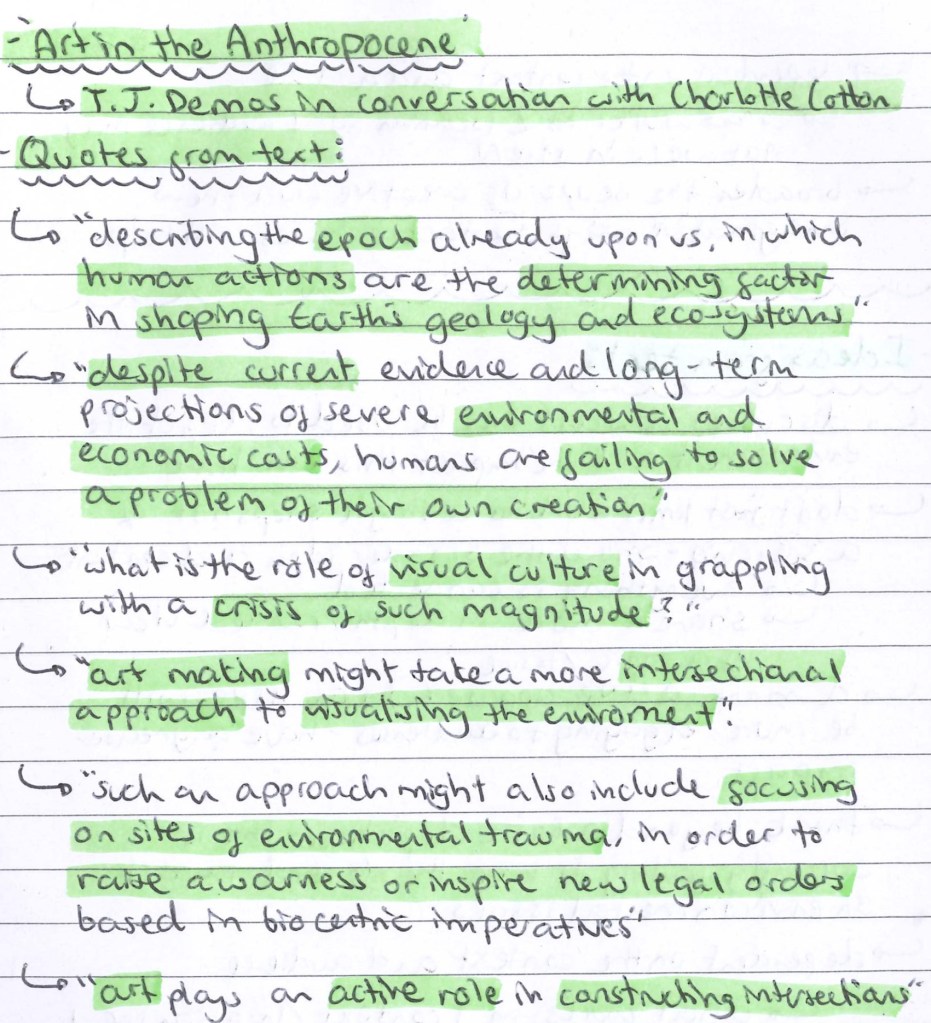 - Art in the Anthropocene
↳ T.J. Demos in conversation with Charlotte Cotton
- Quotes from text:
↳ "describing the epoch already upon us, in which
human actions are the determining factor
in shaping Earth's geology and ecosystems"
↳ "despite current evidence and long-term
projections of severe environmental and
economic costs, humans are failing to solve
a problem of their own creation"
↳ "what is the role of visual culture in grappling
with a crisis of such magnitude?"
↳ "art making might take a more intersectional
approach to visualising the enviroment".
↳ "such an approach might also include focusing
on sites of environmental trauma, in order to
raise awarness or inspire new legal orders
based in biocentric imperatives"
↳ "art plays an active role in constructing intersections"